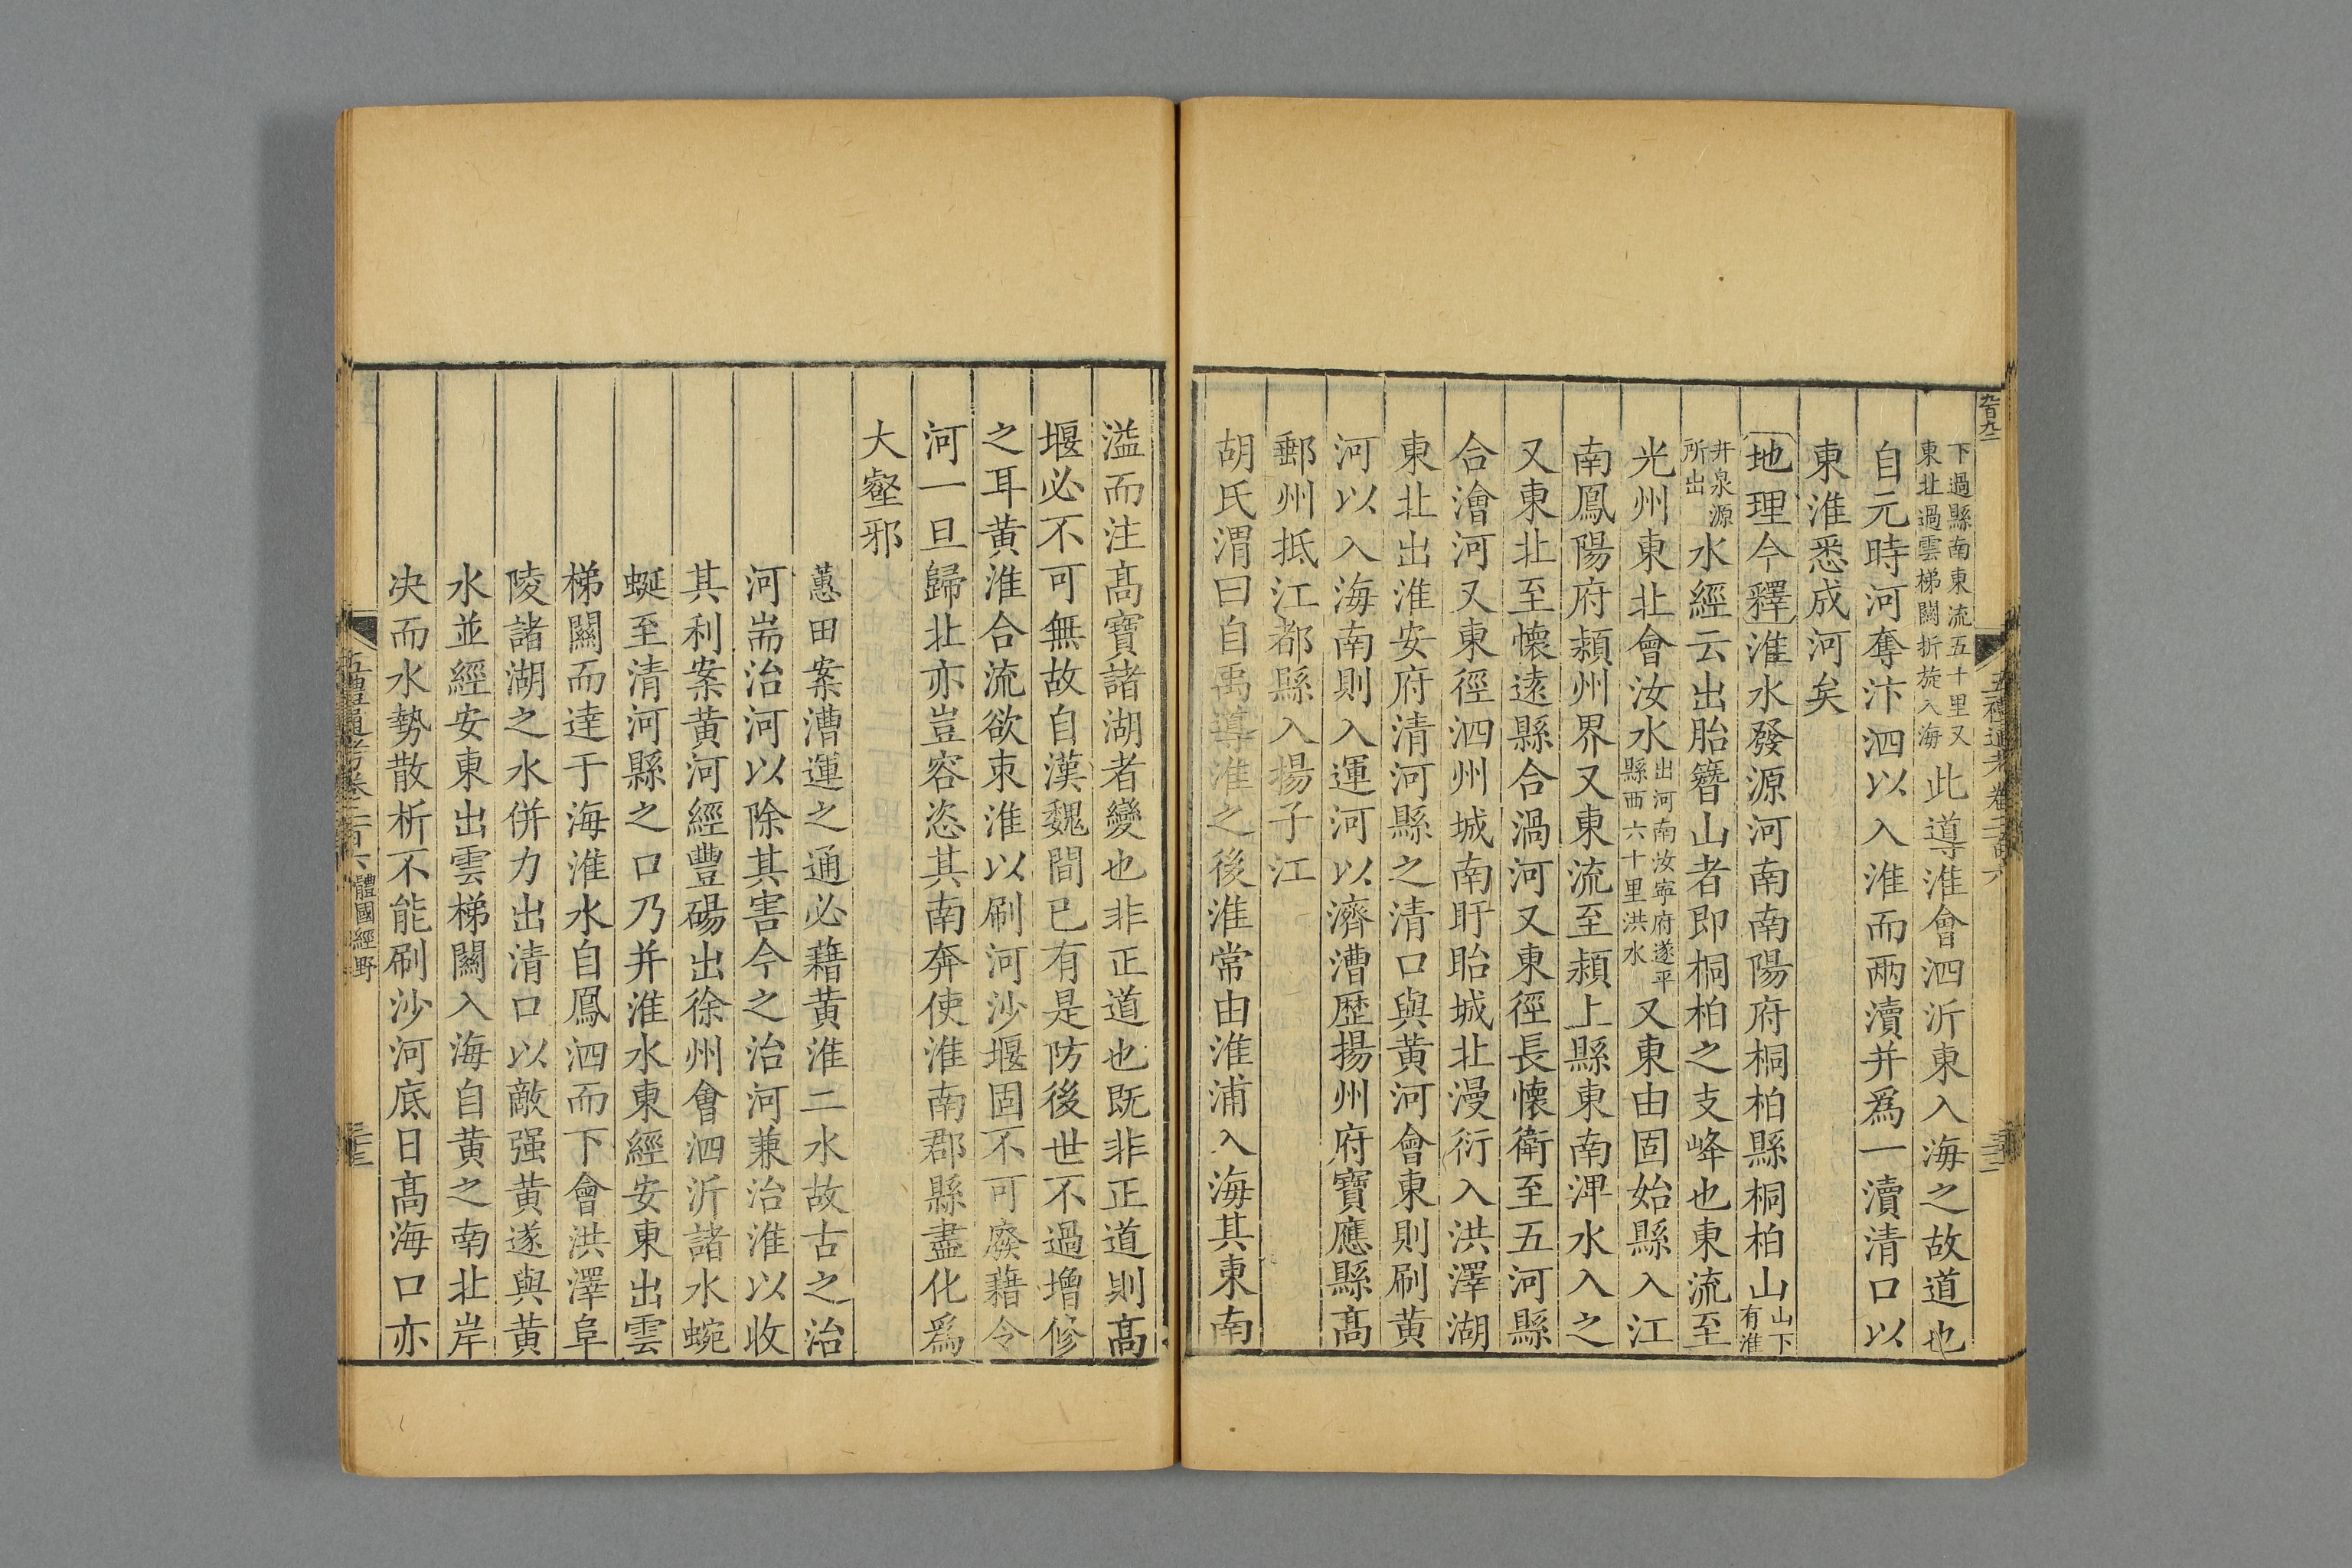 五禮通考卷二百六
下過縣南東流五十里又東北過雲梯關折旋入海此導淮會泗沂東入海之故道也
自元時河奪汴泗以入淮而兩瀆并爲一瀆清口以
東淮悉成河矣
地理今釋淮水發源河南南陽府桐柏縣桐柏山山下有淮
井泉源所出水經云出胎簪山者即桐柏之支峰也東流至
光州東北會汝水出河南汝寧府遂平縣西六十里洪水又東由固始縣入江
南鳳陽府潁州界又東流至潁上縣東南淠水入之
又東北至懷遠縣合渦河又東徑長懷衛至五河縣
合澮河又東徑泗州城南盱眙城北漫衍入洪澤湖
東北出淮安府清河縣之清口與黃河會東則刷黃
河以入海南則入運河以濟漕歷揚州府寶應縣髙
郵州抵江都縣入揚子江
胡氏渭曰自禹導淮之後淮常由淮浦入海其東南
溢而注髙寶諸湖者變也非正道也既非正道則髙
堰必不可無故自漢魏間已有是防後世不過增修
之耳黃淮合流欲束淮以刷河沙堰固不可廢藉令
河一旦歸北亦豈容恣其南奔使淮南郡縣盡化爲
大壑邪
蕙田案漕運之通必藉黃淮二水故古之治
河耑治河以除其害今之治河兼治淮以收
其利案黃河經豐碭出徐州會泗沂諸水蜿
蜒至清河縣之口乃并淮水東經安東出雲
梯關而達于海淮水自鳳泗而下會洪澤阜
陵諸湖之水併力出清口以敵强黃遂與黃
水並經安東出雲梯關入海自黃之南北岸
决而水勢散析不能刷沙河底日髙海口亦
五禮通考卷二百六 體國經野